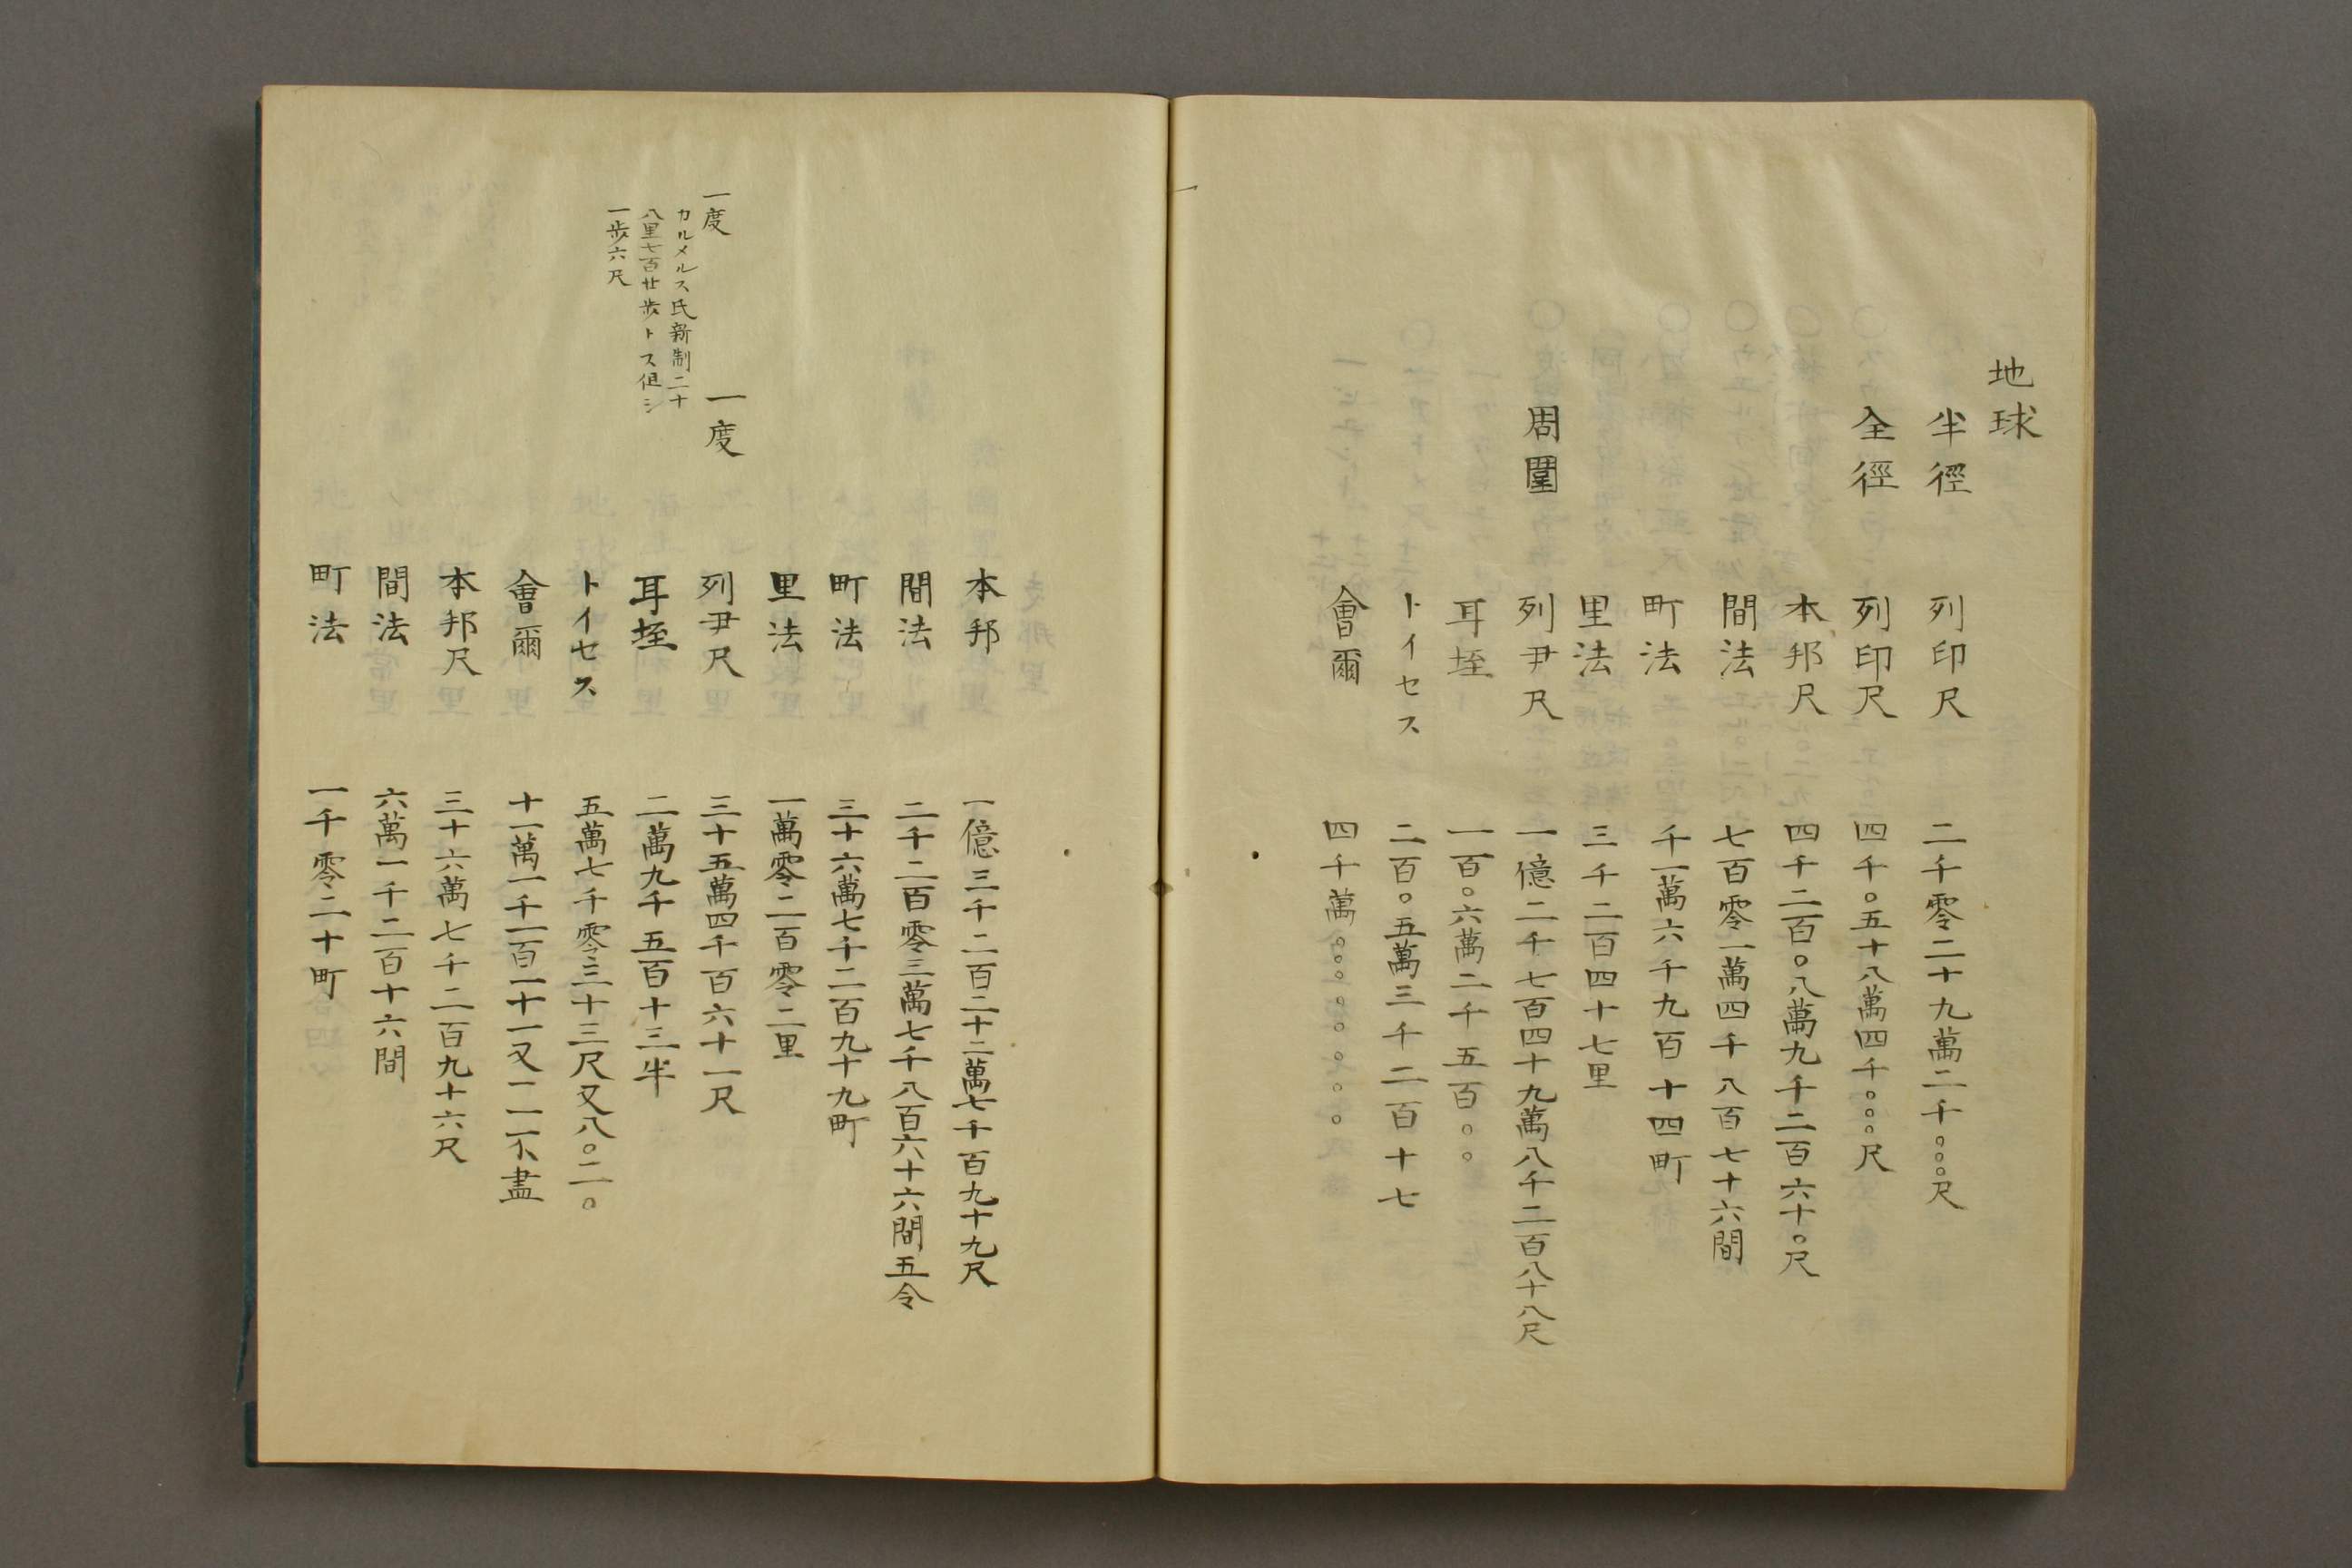 地球
半徑 列印尺 二千零二十九萬二千○○○尺
全徑 列印尺 四千○五十八萬四千○○○尺
本邦尺 四千二百○八萬九千二百六十○尺
間法 七百零一萬四千八百七十六間
町法 十一萬六千九百十四町
里法 三千二百四十七里
周圍 列尹尺 一億二千七百四十九萬八千二百八十八尺
耳堊 一百○六萬二千五百○○
トイセス 二百○五萬三千二百十七
會爾 四千萬○○○○○○○
本邦 一億三千二百二十二萬七千百九十九尺
間法 二千二百零三萬七千八百六十六間五令
町法 三十六萬七千二百九十九町
里法 一萬零二百零二里
一度
カルメルス氏新制二十
八里七百廿歩トス但シ
一歩六尺
一度 列尹尺 三十五萬四千百六十一尺
耳堊 二萬九千五百十三半
トイセス 五萬七千零三十三尺又八○二○
會爾 十一萬一千一百一十一又一一一不盡
本邦尺 三十六萬七千二百九十六尺
間法 六萬一千二百十六間
町法 一千零二十町